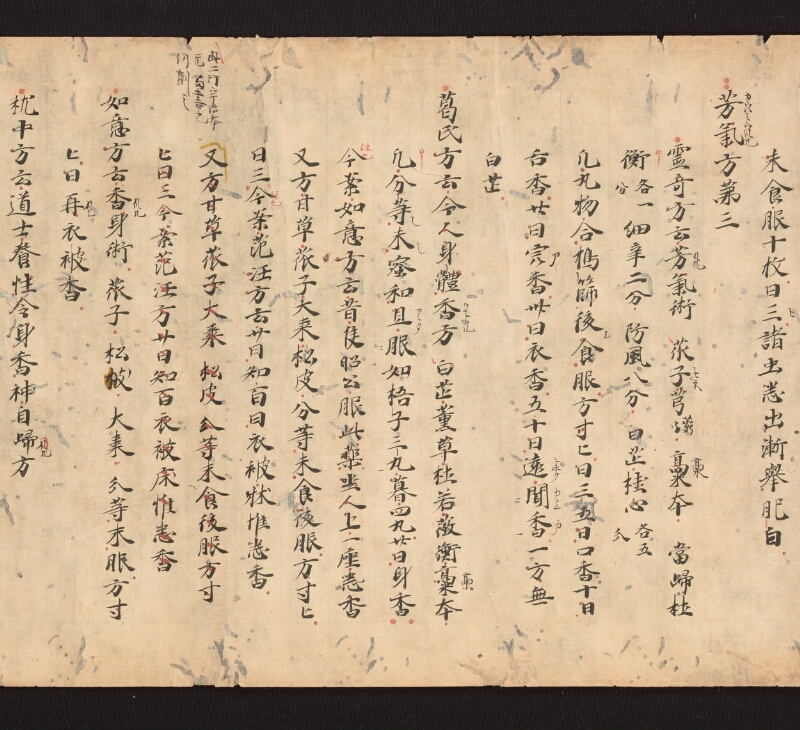 未食服十枚日三諸虫悉出漸舉肥白
芳氣方第三
靈奇方云芳氣術 苽子芎藭 藁本 當歸杜
衡各一分 細辛二分 防風八分 白芷桂心各五分
凡九物合搗篩後食服方寸匕日三五日口香十日
舌香廿日宍香卅日衣香五十日遠聞香一方無
白芷
葛氏方云令人身體香方 白芷薰草杜若薇衡藁本
凡分等末蜜和旦服如梧子三丸暮四丸廿日身香
今案如意方云昔侯昭公服此藥坐人上一座悉香
又方甘草苽子大棗松皮分等末食後服方寸匕
日三今案范汪方云廿日知百日衣被牀帷悉香
又方甘草苽子大棗松皮分等末食後服方寸
匕日三今案范汪方廿日知百衣被床帷悉香
如意方云香身術苽子 松皮 大棗分等末服方寸
匕日再衣被香
枕中方云道士養性令身香神自歸方